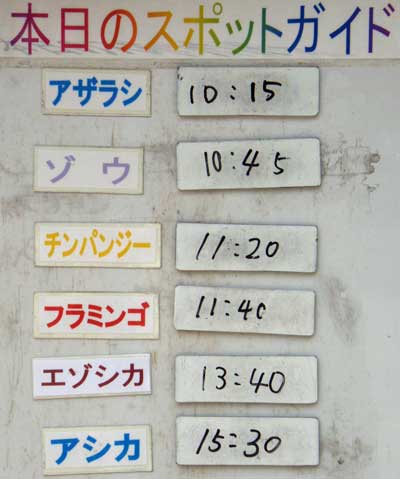 本日のスポットガイド
アザラシ 10:15
ゾウ 10:45
チンパンジー 11:20
フラミンゴ 11:40
エゾシカ 13:40
アシカ 15:30